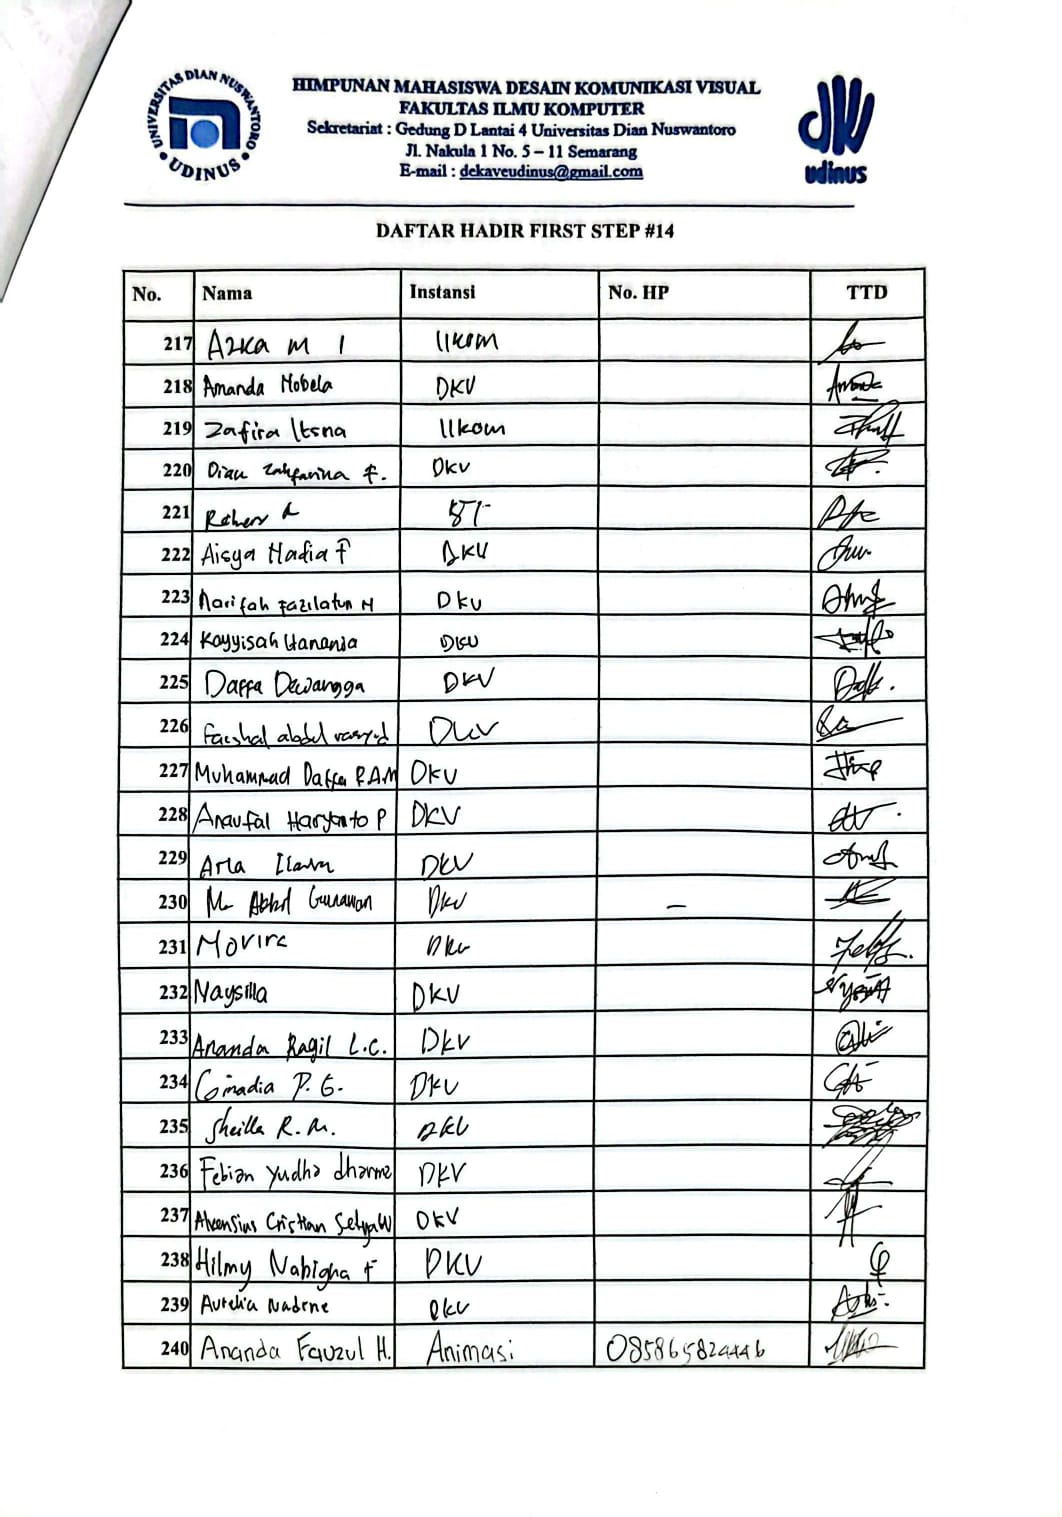 UNIVERSITAS DIAN NUSWANTORO
• UDINUS •
HIMPUNAN MAHASISWA DESAIN KOMUNIKASI VISUAL
FAKULTAS ILMU KOMPUTER
Sekretariat : Gedung D Lantai 4 Universitas Dian Nuswantoro
Jl. Nakula 1 No. 5 – 11 Semarang
E-mail : dekaveudinus@gmail.com
udinus
DAFTAR HADIR FIRST STEP #14
No. Nama Instansi No. HP TTD
217 Azka M I Ilkom
218 Amanda Nobela DKV
219 Zafira Itsna Ilkom
220 Dian F. DKV
221
222 Aisya Nadia F DKV
223 Narifah Fazilatun N DKV
224 Kayyisah Hanania DKV
225 Daffa Dewangga DKV
226 Faishal abdul rasyid DKV
227 Muhammad Daffa R.A.M DKV
228 Anaufal Haryanto P DKV
229 Arla DKV
230 M Abdul Gunawan DKV –
231 Movira DKV
232 Naysilla DKV
233 Ananda Ragil L.C. DKV
234 Ginadia P. G. DKV
235 Sheilla R. M. DKV
236 Febian Yudha dharma DKV
237 Cristian Setya W DKV
238 Hilmy Nabigha F DKV
239 Aurelia Nadine DKV
240 Ananda Fauzul H. Animasi 085865824446